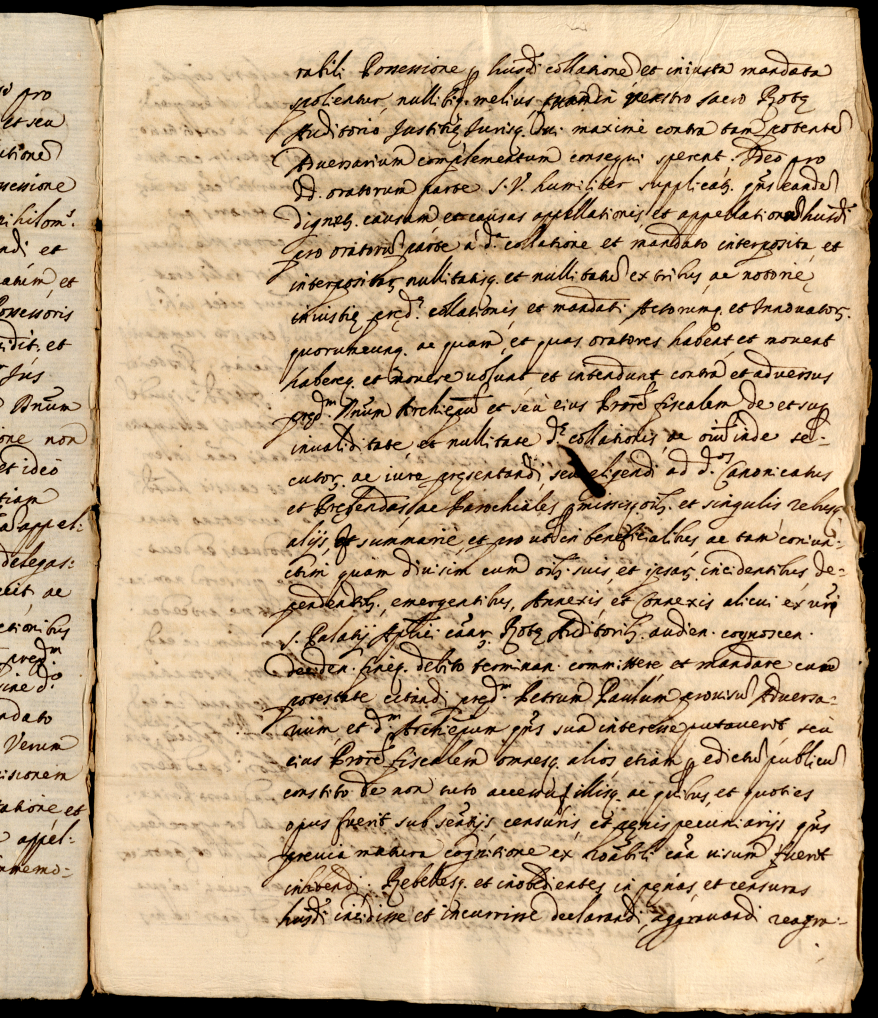 pro
et seu
utione
ssessione
nihilom.s
andi et
et
ossessoris
dit, et
Jus
Dnum
one non
et ideo
tiam
appel:
delegas:
ac
ctionibus
pred.m
sine d.o
ndato
Verum
isionem
tatione et
appel:
mmemo:
rabili Possessione p husdi collatione et iniusta mandata
spolientur, nullibiq. melius quam in vestro sacro Rotę
Auditorio Justitię Jurisq. sui maxime contra tam potente
Adversarium complementum consequi sperent. Ideo pro
DD. oratorum parte S. V. humiliter supplicat. qts eande
dignet. causam et causas appellationis et appellationu husdi
pro oratoru parte à d.a collatione et mandato interposita et
interpositar, nullitatisq. et nullitatu ex tribus ac notorię
iniustię pred.ę collationis et mandati Actorumq. et Innovator.
quorumcunq. ac quam, et quas oratores habent et movent
habereq. et movere volunt et intendunt contra et adversus
pred.m Dnum Archiepum et seu eius Procrem fiscalem de et sup
invaliditate et nullitate d.ę collationis, ac oium inde se-
cutor. ac iure presentandi, seu eligendi ad d.os Canonicatus
et Prębendas, ac Parochiales pmissisq. oib. et singulis rebusq.
alijs, et summariè, et pro ut in beneficialibus ac tam coniun-
ctim quam divisim cum oib. suis, et ipsar. incidentibus de-
pendentib., emergentibus, Annexis et Connexis alicui ex vris
S. Palatij Aplici cãar. Rotę Auditorib. audien. cognoscen.
deciden. fineq. debito terminan. committere et mandare cum
potestate citandi pred.m Petrum Paulum provisu Adversa-
rium, et d.m Archiepum qts sua interesse putaverit, seu
eius Procrem fiscalem omnesq. alios etiam p edictu publicu
constito de non tuto accessu, illisq. ac quibus, et quoties
opus fuerit sub sentijs censuris, et pęnis pecuniarijs qts
previa matura cognitione ex rõabili cãa visum fuerit
inhibendi: Rebellesq. et inobedientes in pęnas et censuras
husdi incidisse et incurrisse declarandi, aggravandi reagra-